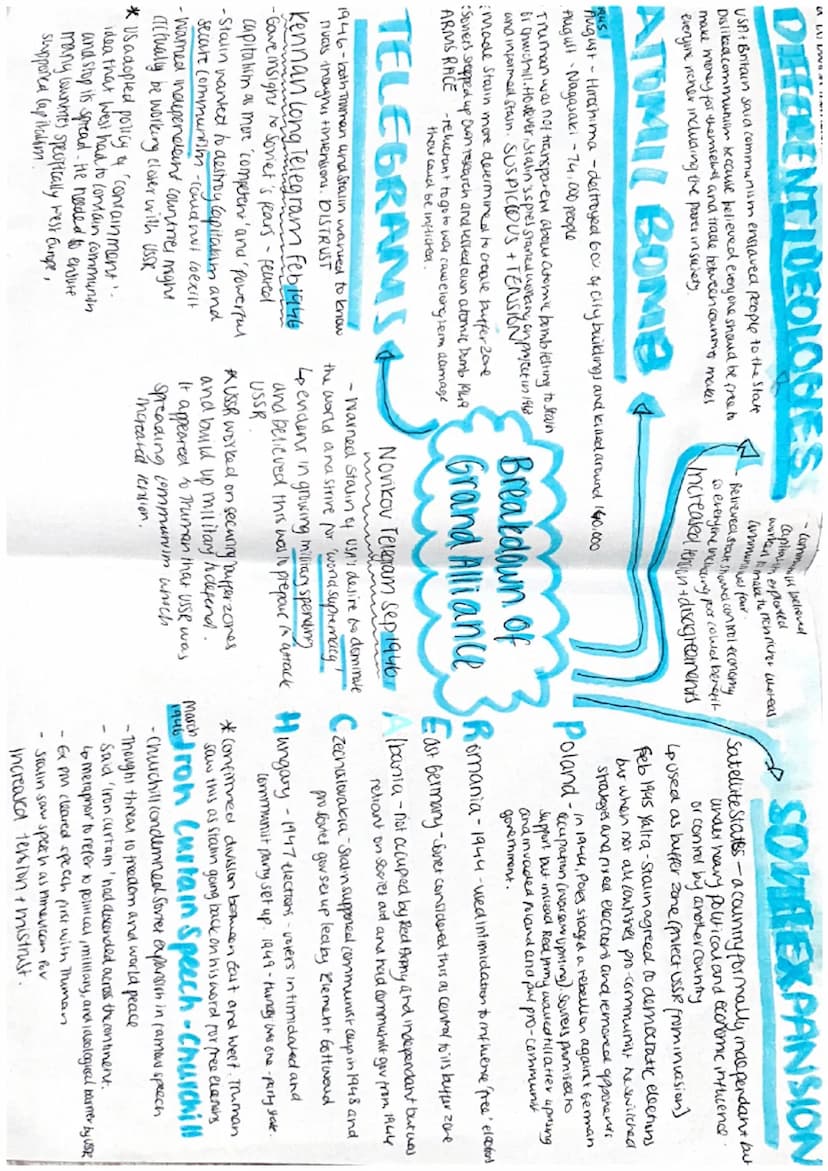 DIFFERENT IDEOLOGIES
USA + Britain said communism enslaved people to the state
Disliked communism because believed everyone should be free to
make money for themselves and trade between countries makes
everyone richer including the poorest in society.
- Communists believed
capitalism exploited
workers to make the rich richer whereas
communism fair.
- Believed state should control economy
so everyone including poor could benefit
Increased tension + disagreements
ATOMIC BOMB
1945
August - Hiroshima - destroyed 60% of city buildings and killed around 140,000
August - Nagasaki - 74,000 people
Truman was not transparent about atomic bomb telling to Stalin
or Churchill. However, Stalin's spies started working on project in
and informed Stalin. SUSPICIOUS + TENSION
: Made Stalin more determined to create buffer zone
: Soviets stepped up own research and tested own atomic bomb 1949
ARMS RACE - reluctant to go to war cause long term damage
they could be inflicted.
TELEGRAMS
1946 - both Truman and Stalin wanted to know
rivals thoughts + intensions. DISTRUST
Kennan Long Telegram Feb 1946
- Gave insight to Soviet's fears - feared
capitalism as more 'competent' and powerful
- Stalin wanted to destroy capitalism and
secure communism - could not coexist
- Warned independent countries might
actually be working closer with USSR
* US adopted policy of 'containment'.
idea that West had to contain communism
and stop its spread - He needed to ensure
many countries specifically West Europe,
supported capitalism.
Breakdown of
Grand Alliance
Novikov Telegram Sep 1946
- Warned Stalin of USA's desire to dominate
the world and strive for 'world supremacy'
↳ evident in growing military spending
and believed this was to prepare to attack
USSR.
* USSR worked on securing buffer zones
and build up military to defend.
It appeared to Truman that USSR was
spreading communism which
increased tension.
SOVIET EXPANSION
Satellite States - a country formally independant but
under heavy political and economic influence
or control by another country
↳ used as buffer zone (protect USSR from invasion)
Feb 1945 Yalta - Stalin agreed to democratic elections
but when not all countries pro-communist he switched
strategies and rigged elections and removed opponents
Poland - in 1944, Poles staged a rebellion against German
occupation (Warsaw uprising). Soviets promised to
support but instead Red Army waited till after uprising
and invaded Poland and put pro-communist
government.
Romania - 1944 - used intimidation to influence 'free' elections
East Germany - Soviet considered this as control to its buffer zone
Albania - Not occupied by Red Army and independent but was
reliant on soviet aid and had communist gov from 1944
Czechoslovakia - Stalin supported communist coup in 1948 and
pro Soviet gov set up led by Klement Gottwald
Hungary - 1947 elections - voters intimidated and
communist party set up. 1949 - Hungary was one-party state.
* Confirmed division between East and West. Truman
saw this as Stalin going back on his word for free elections
March 1946 Iron Curtain Speech - Churchill
- Churchill condemned Soviet expansion in famous speech
- Thought threat to freedom and world peace
- Said 'iron curtain' had descended across the continent.
↳ metaphor to refer to political, military, and ideological barrier by USSR
- Ex PM cleared speech first with Truman
- Stalin saw speech as American for
increased tension + mistrust.